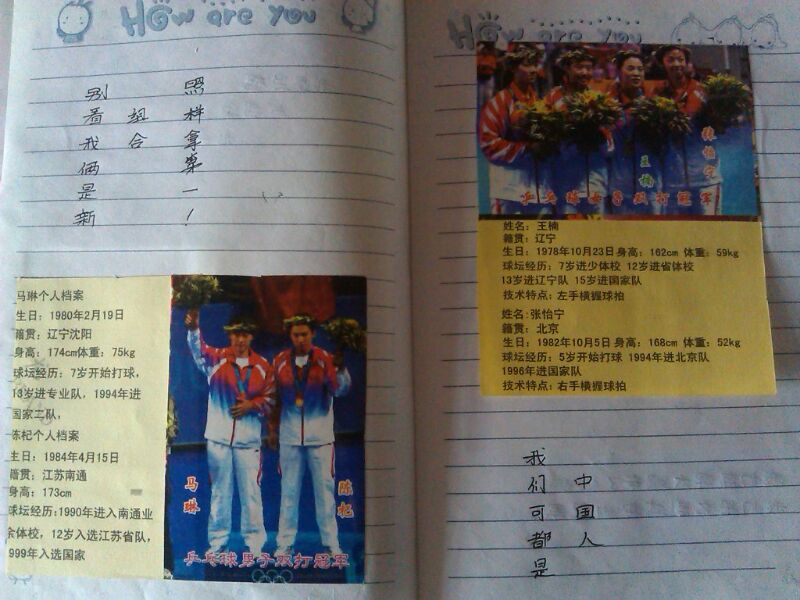 How are you
别看我俩是新
组合
照样拿第一！
马琳个人档案
生日：1980年2月19日
籍贯：辽宁沈阳
身高：174cm体重：75kg
球坛经历：7岁开始打球，
13岁进专业队，1994年进
国家二队，
陈杞个人档案
生日：1984年4月15日
籍贯：江苏南通
身高：173cm
球坛经历：1990年进入南通业
余体校，12岁入选江苏省队，
999年入选国家
马琳
陈杞
乒乓球男子双打冠军
How are you
王楠
张怡宁
乒乓球女子双打冠军
姓名：王楠
籍贯：辽宁
生日：1978年10月23日身高：162cm 体重：59kg
球坛经历：7岁进少体校 12岁进省体校
13岁进辽宁队 15岁进国家队
技术特点：左手横握球拍
姓名：张怡宁
籍贯：北京
生日：1982年10月5日身高：168cm 体重：52kg
球坛经历：5岁开始打球 1994年进北京队
1996年进国家队
技术特点：右手横握球拍
我们可都是
中国人